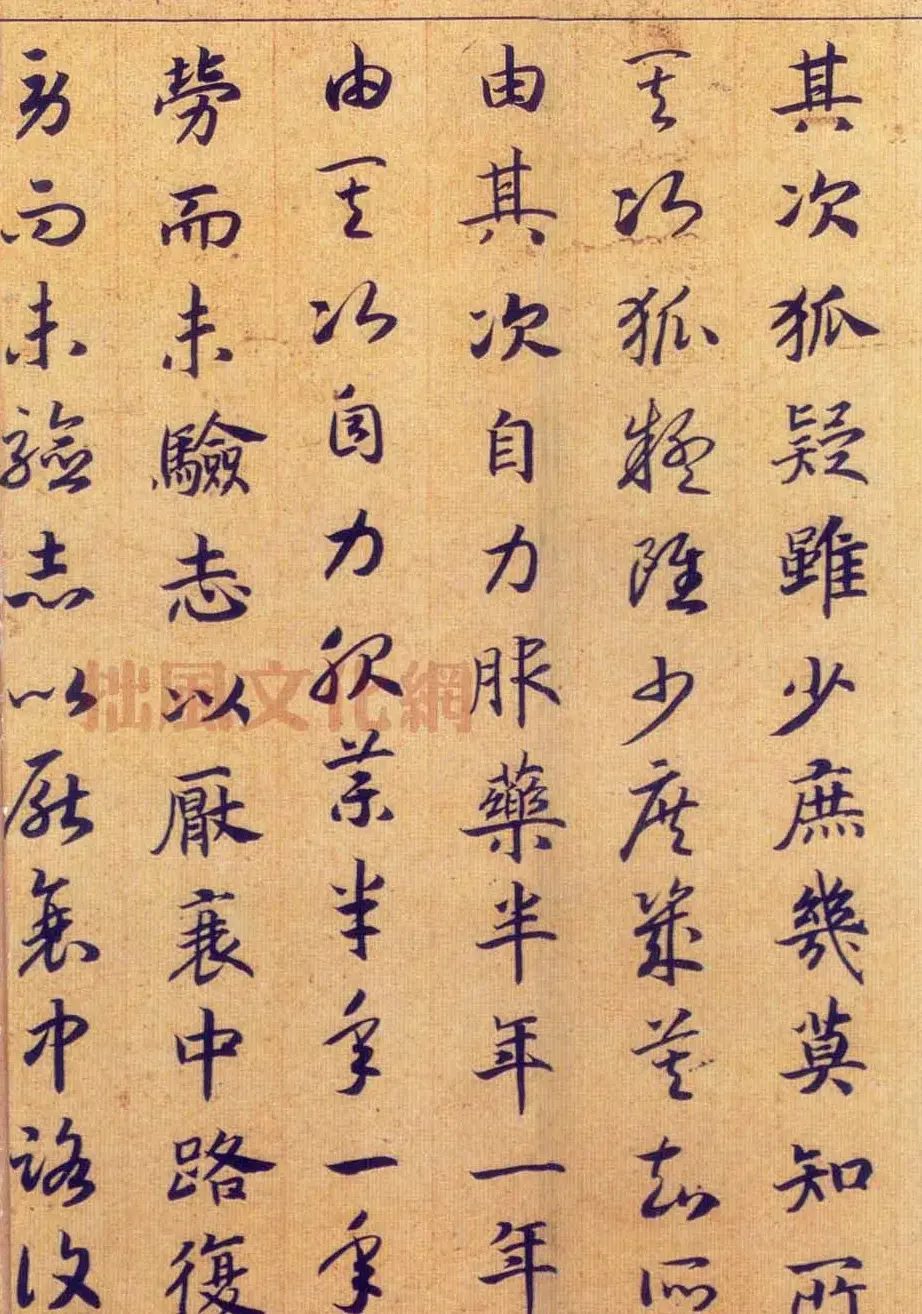 其次狐疑雖少庶幾莫知所
其次狐疑雖少庶幾莫知所
由其次自力服藥半年一年
由其次自力服藥半年一年
勞而未驗志以厭衰中路復
勞而未驗志以厭衰中路復
拙風文化網